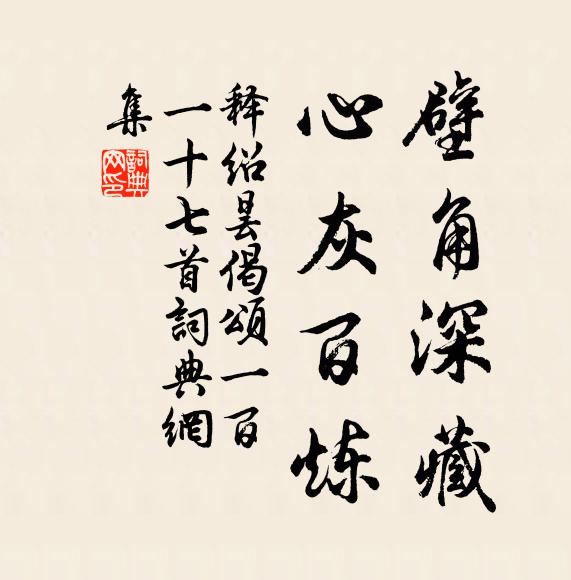 壁角深藏
心灰百炼
释绍昙偈颂一百
一十七首詞典網
集
詞典网印